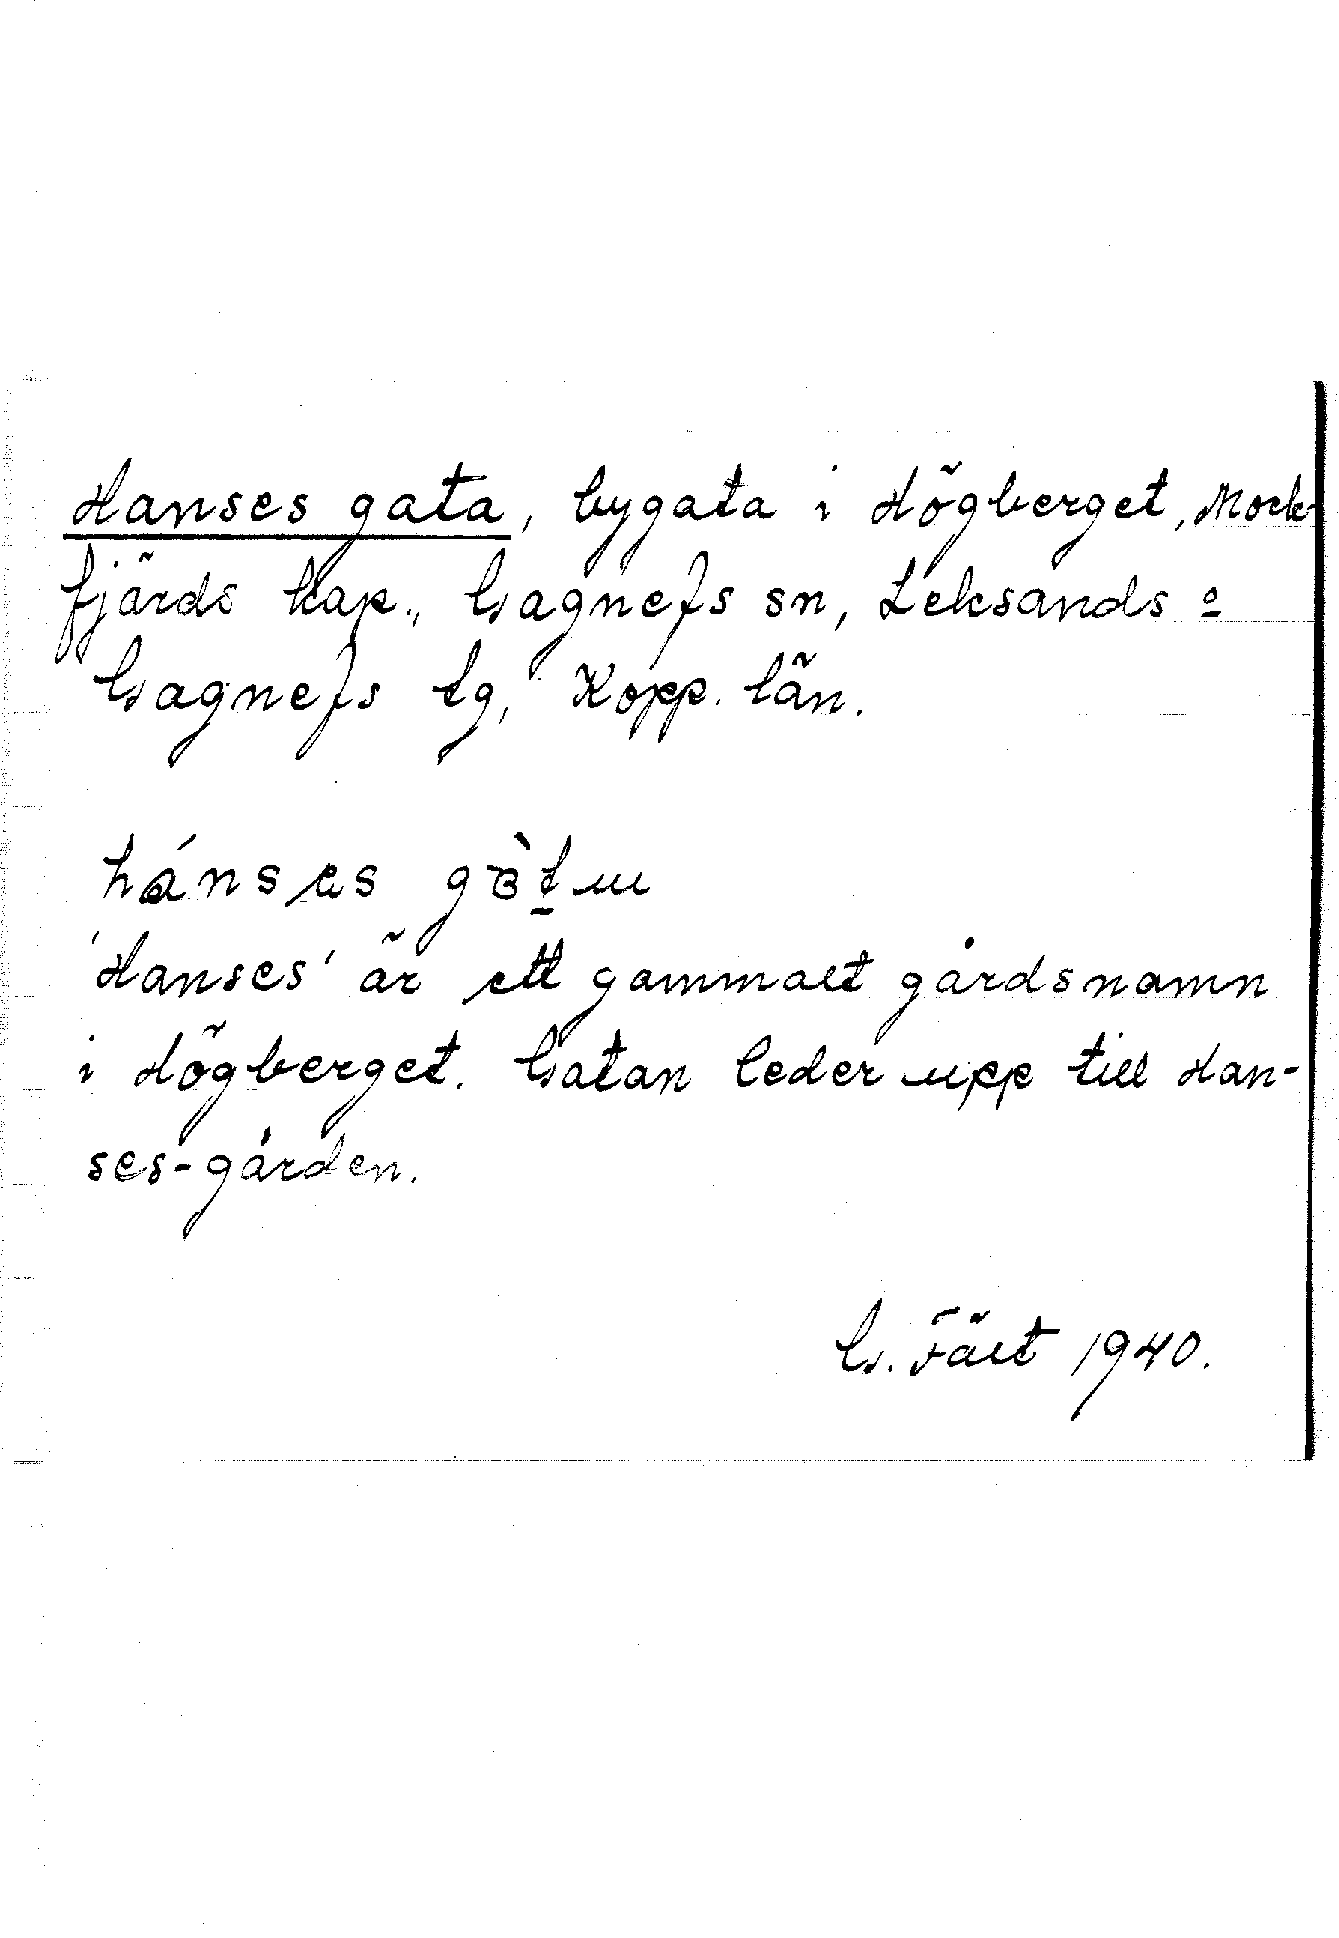 Hanses gata, bygata i Högberget, Mock-
fjärds kap., Gagnefs sn, Leksands o
Gagnefs tg, Kopp. län.
hánses
'Hanses' är ett gammalt gårdsnamn
i Högberget. Gatan leder upp till Han-
ses-gården.
G. Fält 1940.